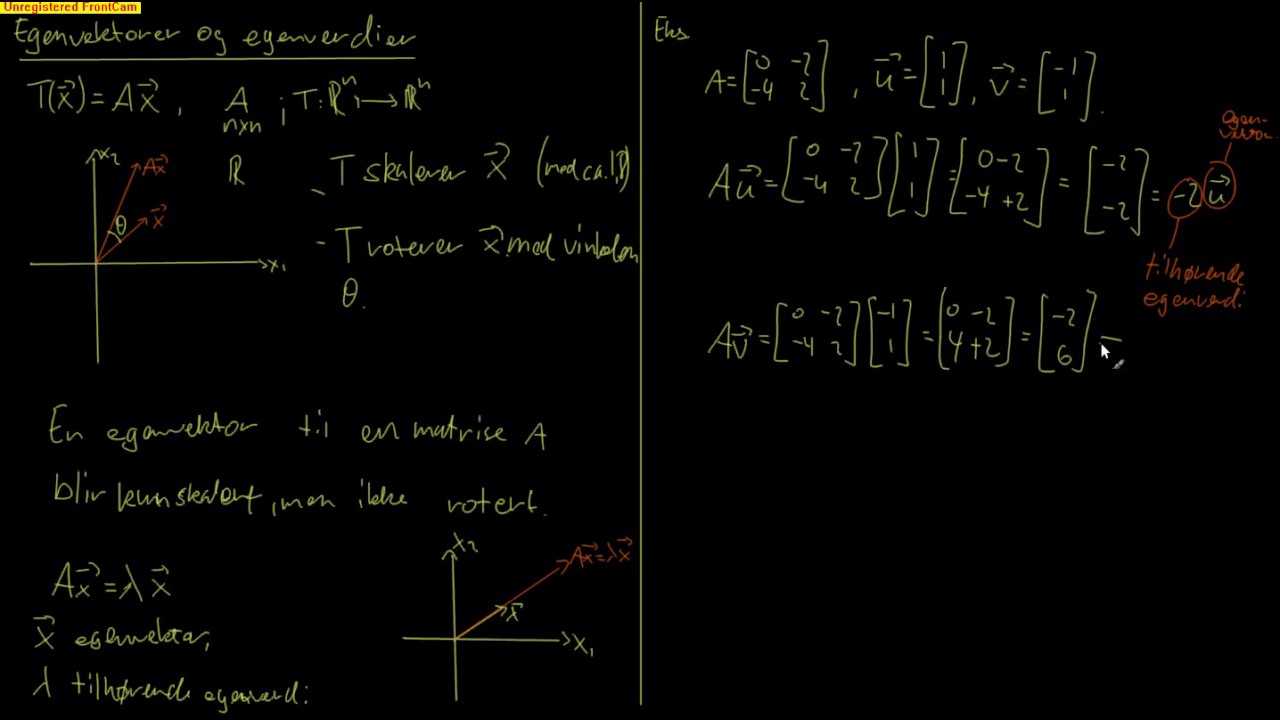 Unregistered FrontCam
Egenvektorer og egenverdier
T(x⃗) = Ax⃗ , A ; T: ℝⁿ → ℝⁿ
n×n
ℝ
x₂
Ax⃗
x⃗
θ
x₁
- T skalerer x⃗ (med ca. 1,8)
- T roterer x⃗ med vinkelen
θ.
En egenvektor til en matrise A
blir kun skalert, men ikke rotert.
Ax⃗ = λx⃗
x⃗ egenvektor,
λ tilhørende egenverdi.
x₂
Ax⃗ = λx⃗
x⃗
x₁
Eks
A = [0 -2; -4 2] , u⃗ = [1; 1] , v⃗ = [-1; 1] .
Au⃗ = [0 -2; -4 2] [1; 1] = [0-2; -4+2] = [-2; -2] = -2 u⃗
egen-
vektor
tilhørende
egenverdi
Av⃗ = [0 -2; -4 2] [-1; 1] = [0-2; 4+2] = [-2; 6] =